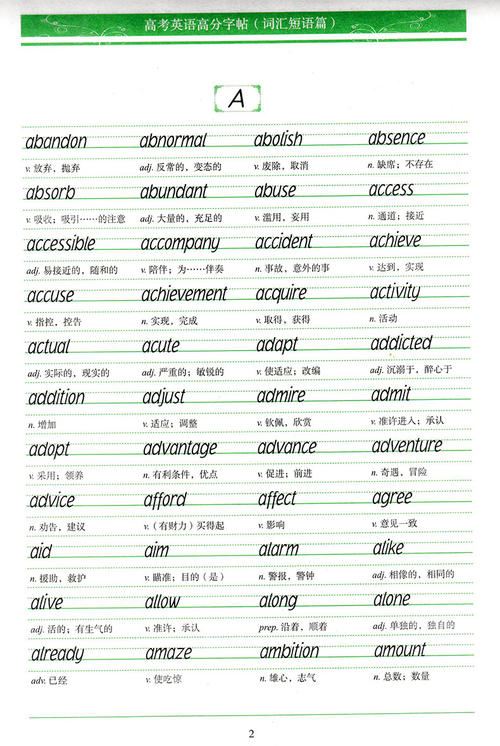 高考英语高分字帖（词汇短语篇）
A
abandon abnormal abolish absence
v. 放弃，抛弃 adj. 反常的，变态的 v. 废除，取消 n. 缺席；不存在
absorb abundant abuse access
v. 吸收；吸引……的注意 adj. 大量的，充足的 v. 滥用，妄用 n. 通道；接近
accessible accompany accident achieve
adj. 易接近的，随和的 v. 陪伴；为……伴奏 n. 事故，意外的事 v. 达到，实现
accuse achievement acquire activity
v. 指控，控告 n. 实现，完成 v. 取得，获得 n. 活动
actual acute adapt addicted
adj. 实际的，现实的 adj. 严重的；敏锐的 v. 使适应；改编 adj. 沉溺于，醉心于
addition adjust admire admit
n. 增加 v. 适应；调整 v. 钦佩，欣赏 v. 准许进入；承认
adopt advantage advance adventure
v. 采用；领养 n. 有利条件，优点 v. 促进；前进 n. 奇遇，冒险
advice afford affect agree
n. 劝告，建议 v.（有财力）买得起 v. 影响 v. 意见一致
aid aim alarm alike
n. 援助，救护 v. 瞄准；目的（是） n. 警报，警钟 adj. 相像的，相同的
alive allow along alone
adj. 活的；有生气的 v. 准许；承认 prep. 沿着，顺着 adj. 单独的，独自的
already amaze ambition amount
adv. 已经 v. 使吃惊 n. 雄心，志气 n. 总数；数量
2